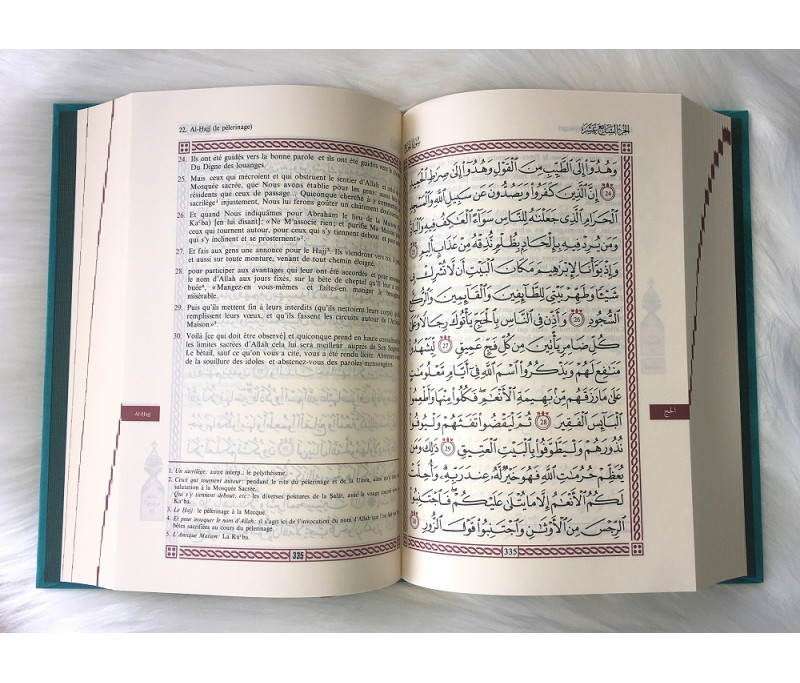 22. Al-Hajj (le pèlerinage)
24. Ils ont été guidés vers la bonne parole et ils ont été guidés vers le
Du Digne des louanges.
25. Mais ceux qui mécroient et qui obstruent le sentier d'Allah et
Mosquée sacrée, que Nous avons établie pour les gens: tout
résidents que ceux de passage... Quiconque cherche à y
sacrilège¹ injustement, Nous lui ferons goûter un châtiment
26. Et quand Nous indiquâmes pour Abraham le lieu de la Maison
Ka'ba) [en lui disant]: «Ne M'associe rien; et purifie Ma Maison
ceux qui tournent autour, pour ceux qui s'y tiennent debout et pour
qui s'y inclinent et se prosternent»².
27. Et fais aux gens une annonce pour le Hajj³. Ils viendront vers toi,
et aussi sur toute monture, venant de tout chemin éloigné,
28. pour participer aux avantages qui leur ont été accordés et pour
le nom d'Allah aux jours fixés, sur la bête de cheptel qu'Il leur a
buée⁴, «Mangez-en vous-mêmes et faites-en manger le
misérable.
29. Puis qu'ils mettent fin à leurs interdits (qu'ils nettoient leurs corps)
remplissent leurs vœux, et qu'ils fassent les circuits autour de
Maison»⁵
30. Voilà [ce qui doit être observé] et quiconque prend en haute
les limites sacrées d'Allah cela lui sera meilleur auprès de Son
Le bétail, sauf ce qu'on vous a cité, vous a été rendu licite.
de la souillure des idoles et abstenez-vous des paroles mensongères.
Al-Hajj
1. Un sacrilège: autre interp.: le polythéisme.
2. Ceux qui tournent autour: pendant le rite du pèlerinage et de la Umra, ainsi qu'en
salutation à la Mosquée Sacrée.
Qui s'y tiennent debout, etc: les diverses postures de la Salât, avec le visage tourné vers
Ka'ba.
3. Le Hajj: le pèlerinage à la Mecque.
4. Et pour invoquer le nom d'Allah: il s'agit ici de l'invocation du nom d'Allah sur les
bêtes sacrifiées au cours du pèlerinage.
5. L'Antique Maison: La Ka'ba.
335
الجزء السابع عشر
وَهُدُوٓاْ إِلَى ٱلطَّيِّبِ مِنَ ٱلْقَوْلِ وَهُدُوٓاْ إِلَىٰ صِرَٰطِ
24 إِنَّ ٱلَّذِينَ كَفَرُواْ وَيَصُدُّونَ عَن سَبِيلِ ٱللَّهِ
ٱلْحَرَامِ ٱلَّذِى جَعَلْنَٰهُ لِلنَّاسِ سَوَآءً ٱلْعَٰكِفُ فِيهِ
وَمَن يُرِدْ فِيهِ بِإِلْحَادٍۭ بِظُلْمٍ نُّذِقْهُ مِنْ عَذَابٍ أَلِيمٍ
وَإِذْ بَوَّأْنَا لِإِبْرَٰهِيمَ مَكَانَ ٱلْبَيْتِ أَن لَّا تُشْرِكْ بِى
شَيْـًٔا وَطَهِّرْ بَيْتِىَ لِلطَّآئِفِينَ وَٱلْقَآئِمِينَ وَٱلرُّكَّعِ
ٱلسُّجُودِ 26 وَأَذِّن فِى ٱلنَّاسِ بِٱلْحَجِّ يَأْتُوكَ رِجَالًا وَعَلَىٰ
كُلِّ ضَامِرٍ يَأْتِينَ مِن كُلِّ فَجٍّ عَمِيقٍ 27 لِّيَشْهَدُواْ
مَنَٰفِعَ لَهُمْ وَيَذْكُرُواْ ٱسْمَ ٱللَّهِ فِىٓ أَيَّامٍ مَّعْلُومَٰتٍ
عَلَىٰ مَا رَزَقَهُم مِّنۢ بَهِيمَةِ ٱلْأَنْعَٰمِ فَكُلُواْ مِنْهَا وَأَطْعِمُواْ
ٱلْبَآئِسَ ٱلْفَقِيرَ 28 ثُمَّ لْيَقْضُواْ تَفَثَهُمْ وَلْيُوفُواْ
نُذُورَهُمْ وَلْيَطَّوَّفُواْ بِٱلْبَيْتِ ٱلْعَتِيقِ 29 ذَٰلِكَ وَمَن
يُعَظِّمْ حُرُمَٰتِ ٱللَّهِ فَهُوَ خَيْرٌ لَّهُۥ عِندَ رَبِّهِۦ وَأُحِلَّتْ
لَكُمُ ٱلْأَنْعَٰمُ إِلَّا مَا يُتْلَىٰ عَلَيْكُمْ فَٱجْتَنِبُواْ
ٱلرِّجْسَ مِنَ ٱلْأَوْثَٰنِ وَٱجْتَنِبُواْ قَوْلَ ٱلزُّورِ 30
الحج
335